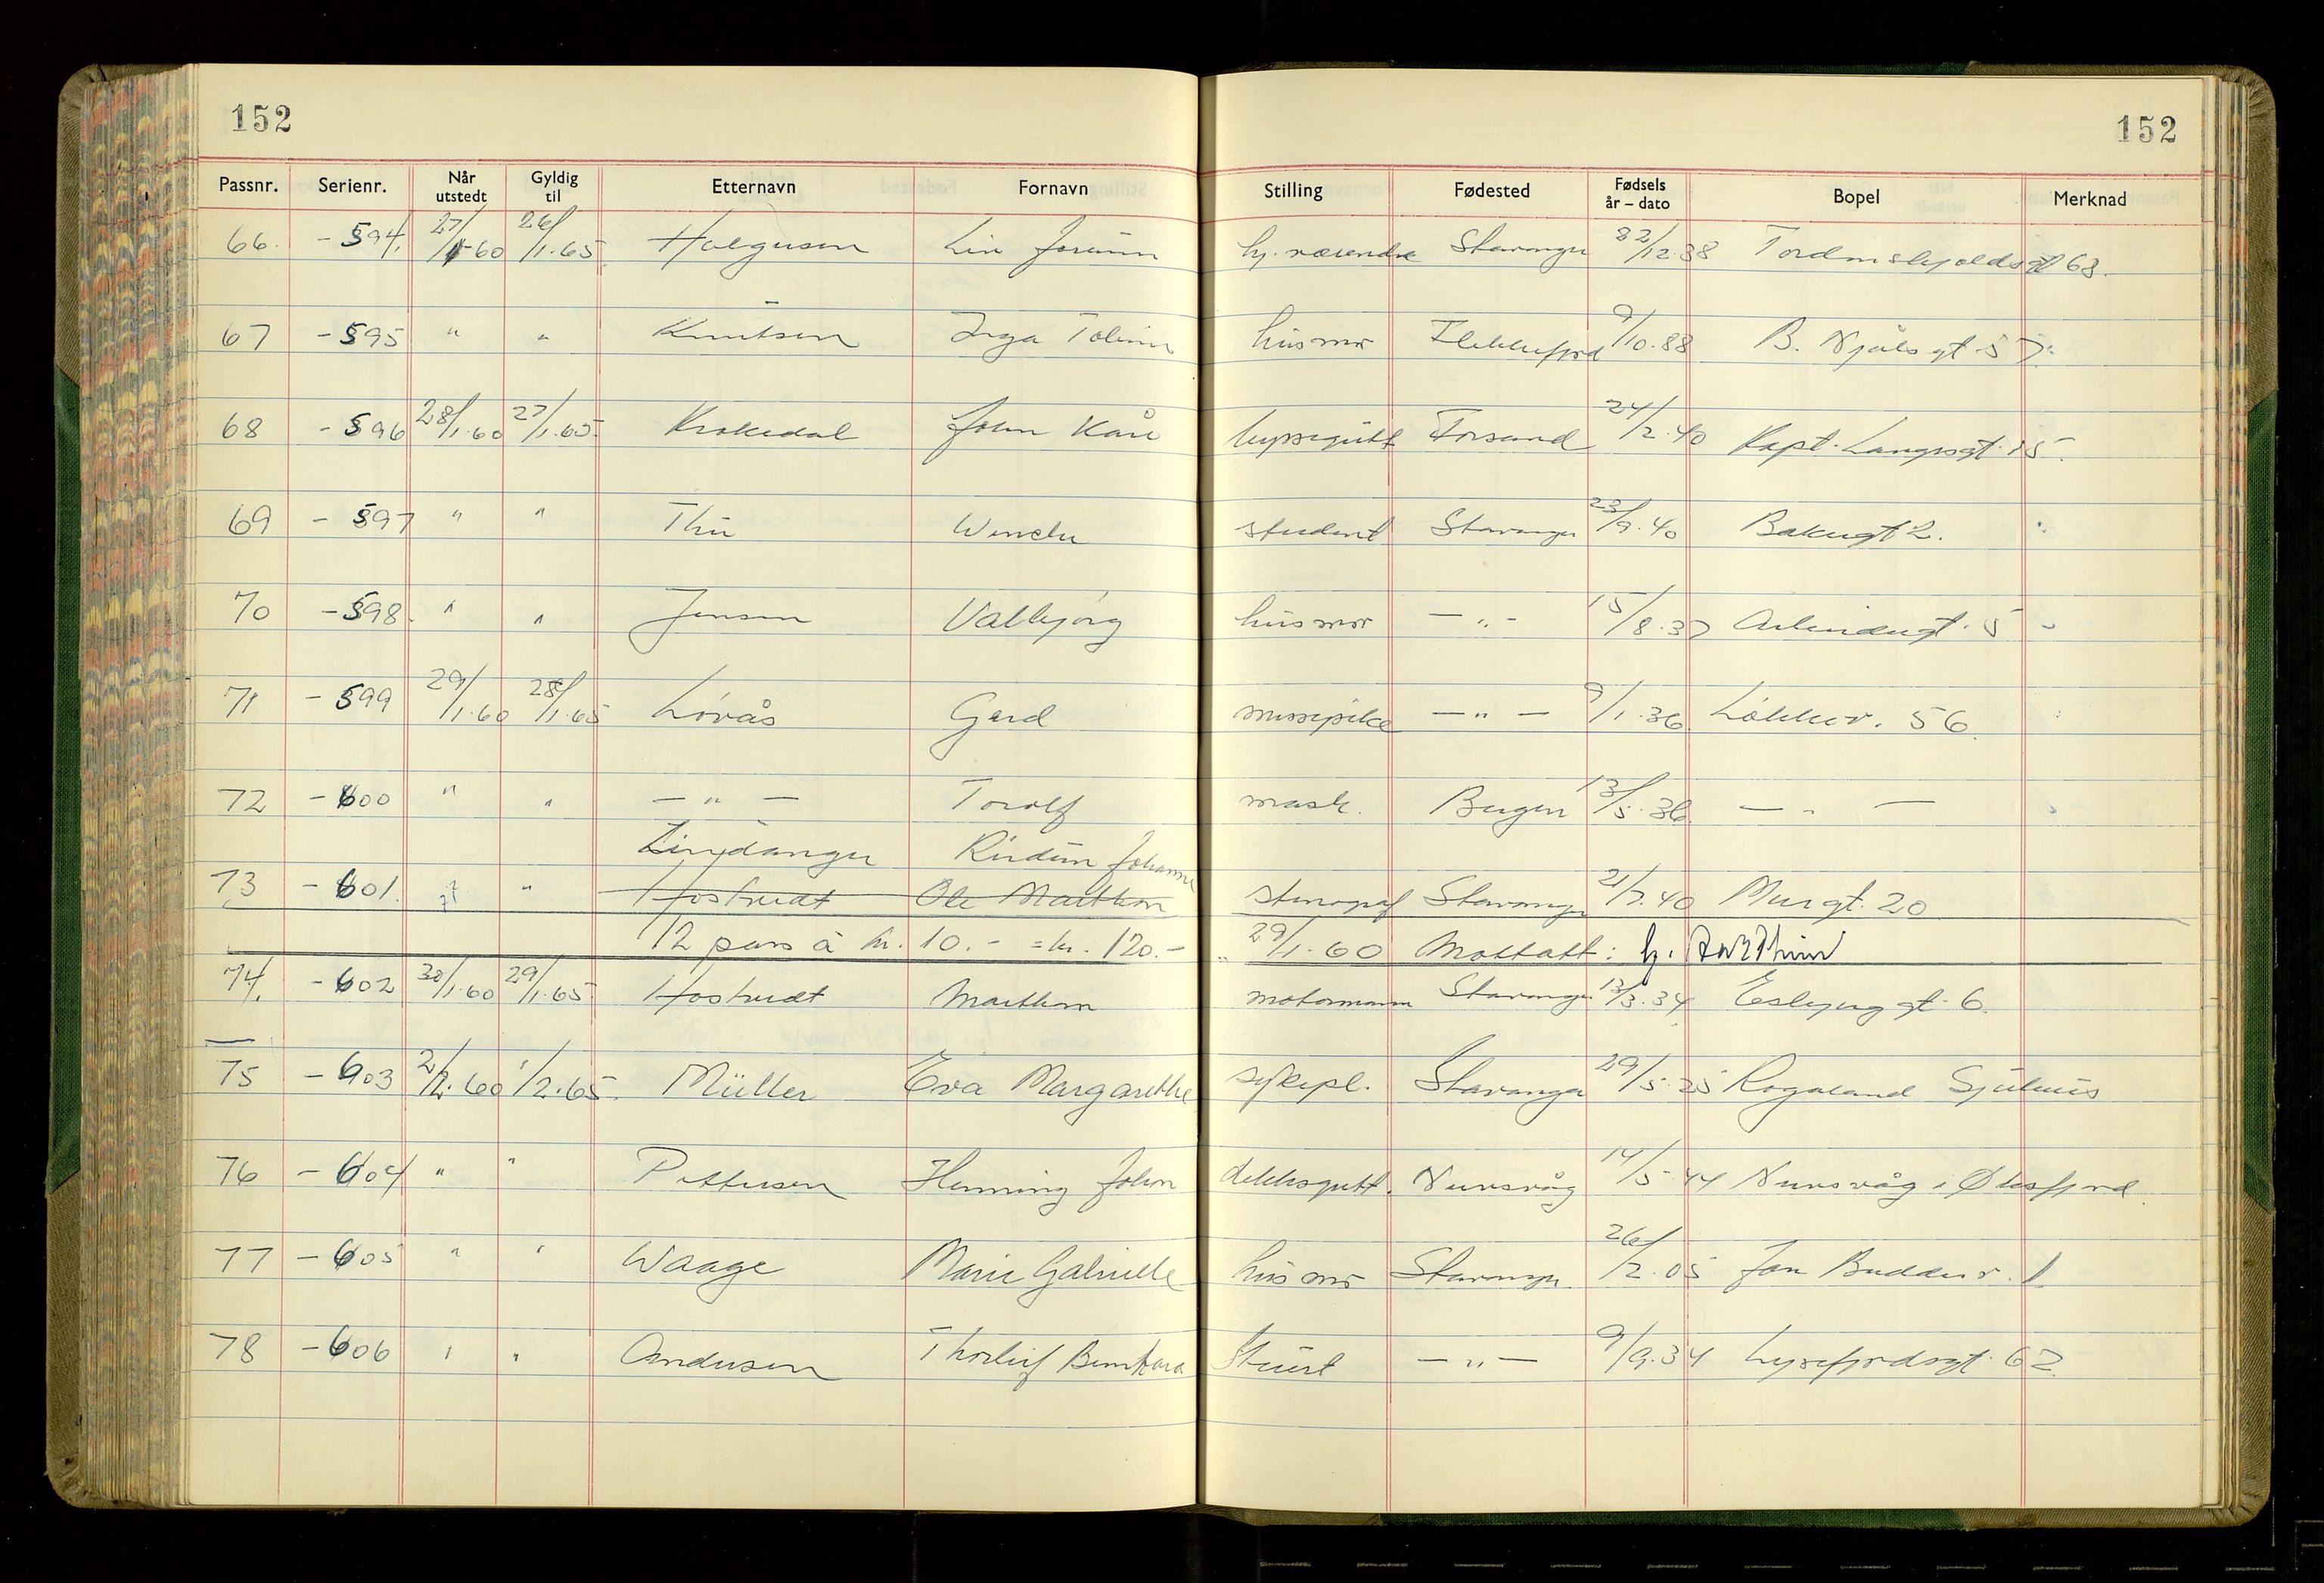 152 152
Passnr. Serienr. Når utstedt Gyldig til Etternavn Fornavn Stilling Fødested Fødsels år – dato Bopel Merknad
66. -594. 27/1-60 26/1.65 Helgesen Liv Jorunn hj. værende Stavanger 22/12.38 Tordenskjoldsgt 63.
67 -595 " " Knutsen Inga Toline husmor Flekkefjord 9/10.88 B. Njålsgt 57.
68 -596 28/1.60 27/1.65 Krokedal John Kåre byssegutt Forsand 24/2.40 Kapt. Langesgt. 15.
69 -597 " " Thu Wenche student Stavanger 23/9.40 Bakergt 2.
70 -598. " " Jensen Valbjørg husmor — " — 15/8.37 5
71 -599 29/1.60 28/1.65 Lövås Gerd messepike — " — 9/1.36 Løkkev. 56.
72 -600 " " — " — Torolf mask. Bergen 13/5.36. — " —
Lindanger Reidun Johanne
73 -601. " " Hostvedt Ole Marthon stenograf Stavanger 21/7.40 Murgt. 20
12 pass à kr. 10.- = kr. 120.- 29/1-60 Mottatt:
74. -602 30/1.60 29/1.65 Hostvedt Marthon motormann Stavanger 13/3.34 Esbjerggt. 6.
75 -603 2/2.60 1/2.65. Müller Eva Margarethe sykepl. Stavanger 29/5.25 Rogaland Sjukehus
76 -604 " " Pettersen Henning John dekksgutt. Nuvsvåg 14/5-44 Nuvsvåg i Øksfjord
77 -605 " " Waage Marie Gabrielle husmor Stavanger 26/2.05 Jan Buddes v. 1
78 -606 " " Andersen Thorleif Stuert — " — 9/9.34 Lysefjordsgt. 62.